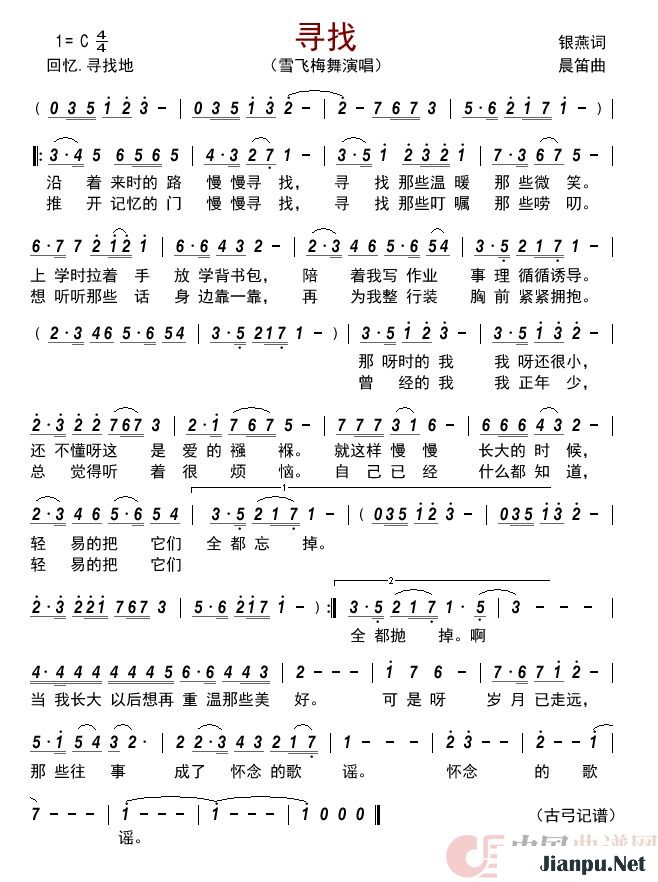 寻找
1= C 4/4
银燕词
回忆.寻找地
（雪飞梅舞演唱）
晨笛曲
( 0 3 5 1 2 3 - | 0 3 5 1 3 2 - | 2 - 7 6 7 3 | 5·6 2 1 7 1 - ) |
‖: 3·4 5 6 5 6 5 | 4·3 2 7 1 - | 3·5 1 2 3 2 1 | 7·3 6 7 5 - |
沿 着 来时的 路 慢 慢寻 找， 寻 找 那些温 暖 那 些微 笑。
推 开 记忆的 门 慢 慢寻 找， 寻 找 那些叮 嘱 那 些唠 叨。
6·7 7 2 1 2 1 | 7·6 6 4 3 2 - | 2·3 4 6 5·6 5 4 | 3·5 2 1 7 1 - |
上 学时拉着 手 放 学背书包， 陪 着我写 作业 事 理 循循诱导。
想 听听那些 话 身 边靠一靠， 再 为我整 行装 胸 前 紧紧拥抱。
( 2·3 4 6 5·6 5 4 | 3·5 2 1 7 1 - ) | 3·5 4 2 3 - | 3·5 1 2 3 - |
那 呀时的 我 我 呀还很小，
曾 经的 我 我 正年 少，
2·3 2 2 7 6 7 3 | 2·1 7 6 7 5 - | 7 7 7 3 1 6 - | 6 6 6 4 3 2 - |
还 不懂呀这 是 爱 的 襁 褓。 就这样 慢 慢 长大的 时 候，
总 觉得听 着 很 烦 恼。 自 己已 经 什么都 知 道，
1
2·3 4 6 5·6 5 4 | 3·5 2 1 7 1 - | ( 0 3 5 1 2 3 - | 0 3 5 1 3 2 - |
轻 易的把 它们 全 都 忘 掉。
轻 易的把 它们
2
2·3 2 2 1 7 6 7 3 | 5·6 2 1 7 1 - ) :‖ 3·5 2 1 7 1· 5 | 3 - - - |
全 都抛 掉。啊
4·4 4 4 4 4 4 5 | 6·6 6 6 4 4 3 | 2 - - - | 1 7 6 - | 7·6 7 1 2 - |
当 我长大 以后想再 重 温那些美 好。 可 是 呀 岁 月 已走远，
5·1 5 4 3 2· | 2 5 4 4 3 2 1 7 | 1 - - - | 4 3 2 - | 2 - 5 5 |
那 些往 事 成了 怀念 的歌 谣。 怀念 的 歌
7 - - - | 1 - - - | 1 - - - | 1 0 0 0 ‖
（古弓记谱）
谣。
Jianpu.Net